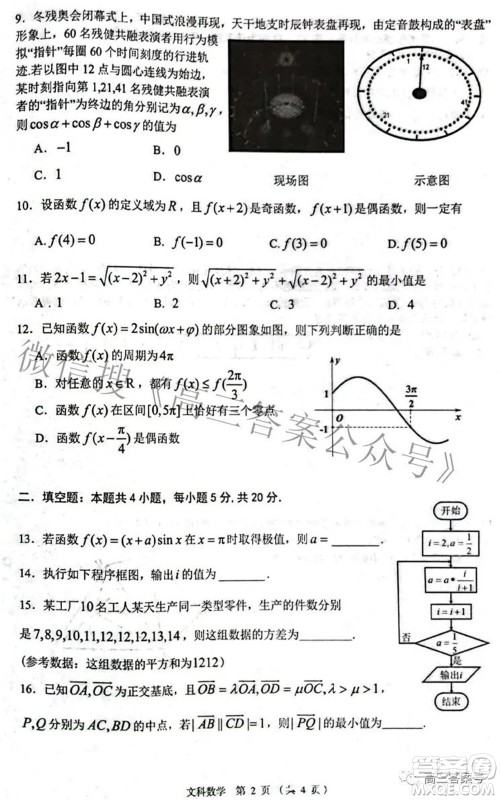 9. 冬残奥会闭幕式上,中国式浪漫再现,天干地支时辰钟表盘再现,由定音鼓构成的“表盘”
形象上,60名残健共融表演者用行为模
拟“指针”每圈60个时间刻度的行进轨
迹.若以图中12点与圆心连线为始边,
某时刻指向第1,21,41名残健共融表演
者的“指针”为终边的角分别记为α,β,γ,
则cosα+cosβ+cosγ的值为
A. -1 B. 0
C. 1 D. cosα
1
12
21
41
现场图 示意图
10. 设函数f(x)的定义域为R,且f(x+2)是奇函数,f(x+1)是偶函数,则一定有
A. f(4)=0 B. f(2)=0 C. f(3)=0 D. f(5)=0
11. 若2x-1=√((x-2)²+y²),则√((x+2)²+y²)+√((x-2)²+y²)的最小值是
A. 1 B. 2 C. 3 D. 4
12. 已知函数f(x)=2sin(ωx+φ)的部分图象如图,则下列判断正确的是
A. 函数f(x)的周期为4π
B. 对任意的x∈R,都有f(x)≤f(2π/3)
C. 函数f(x)在区间[0,5π]上恰好有三个零点
D. 函数f(x-π/4)是偶函数
y
1
O
-1
3π/2
x
二、填空题:本题共4小题,每小题5分,共20分.
13. 若函数f(x)=(x+a)sinx在x=π时取得极值,则a=
14. 执行如下程序框图,输出i的值为
15. 某工厂10名工人某天生产同一类型零件,生产的件数分别
是7,8,9,10,11,12,12,13,14,则这组数据的方差为
(参考数据:这组数据的平方和为1212)
16. 已知OA,OC为正交基底,且OB=λOA,OD=μOC,λ>μ>1,
P,Q分别为AC,BD的中点,若|AB|=|CD|=1,则|PQ|的最小值为
开始
i=2,a=1/2
a=a*i/(i+1)
i=i+1
a=1/5
否
是
输出i
结束
文科数学 第2页(共4页)
微信搜《高三答案公众号》
高三答案号